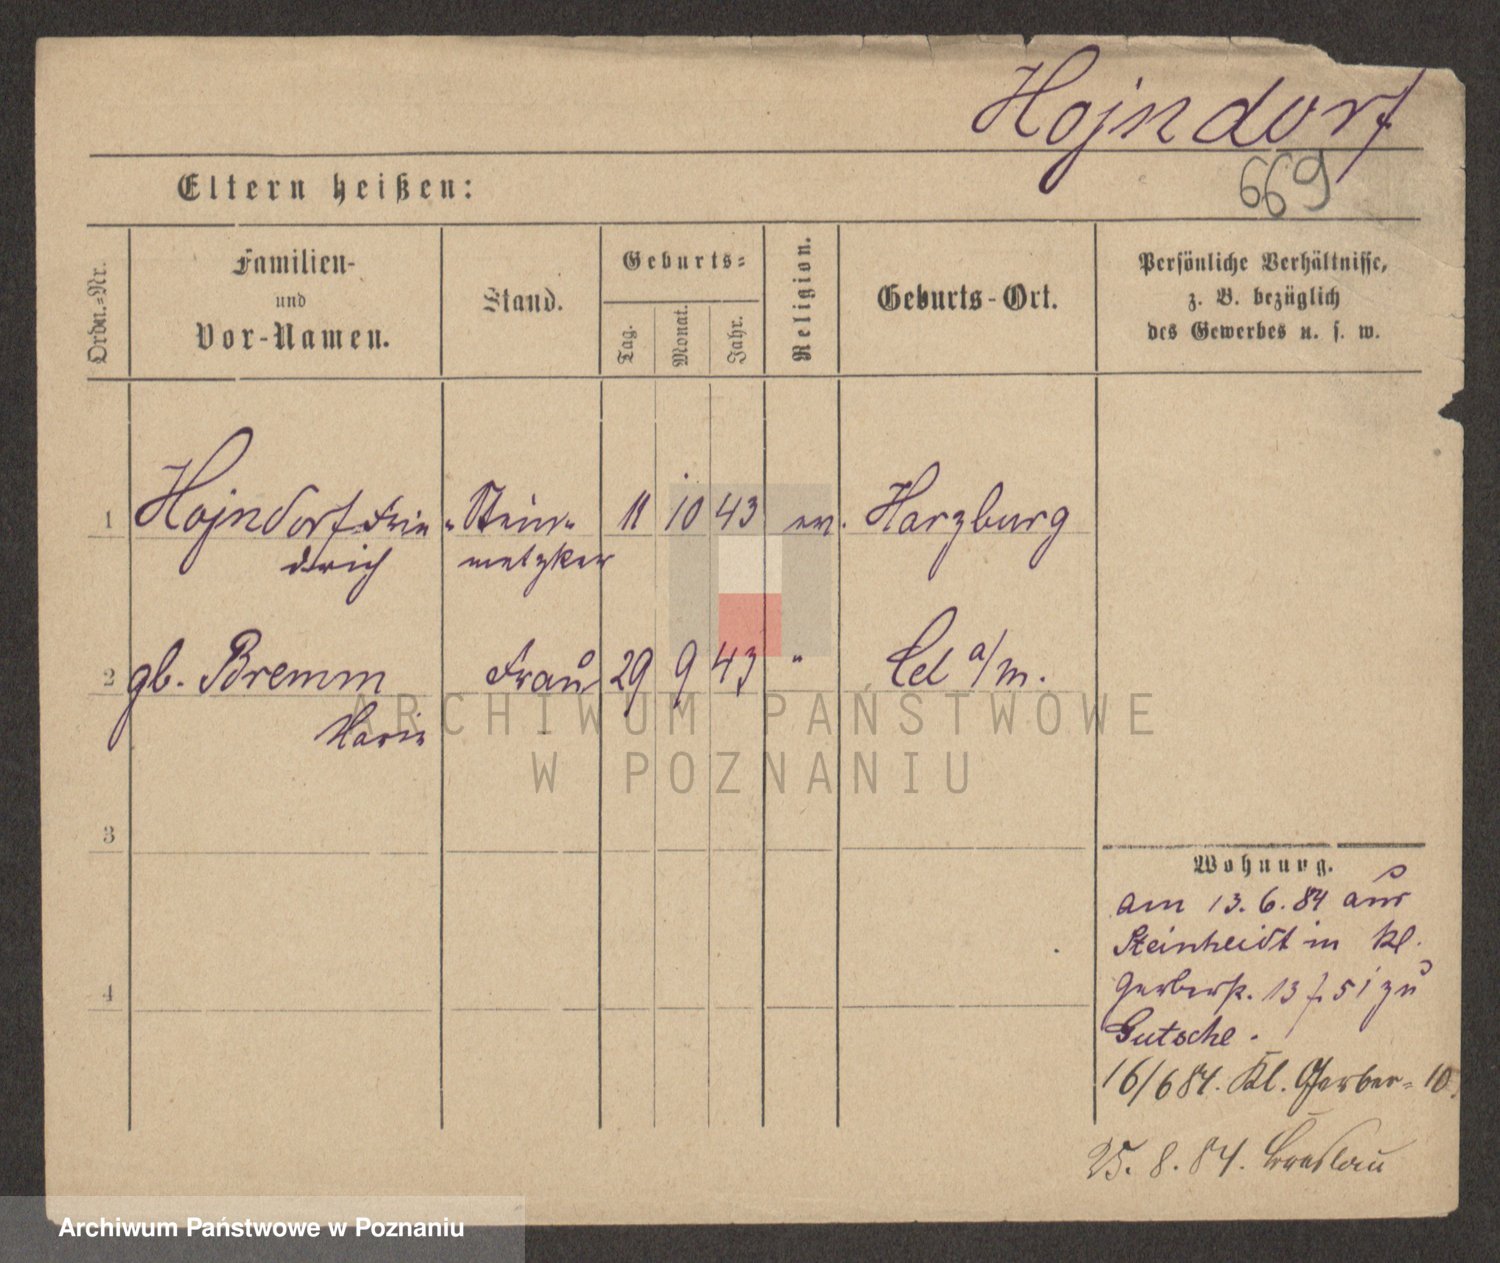 Hojndorf
669
Eltern heißen:
Ordn.-Nr.
Familien-
und
Vor-Namen.
Stand.
Geburts-
Tag.
Monat.
Jahr.
Religion.
Geburts-Ort.
Persönliche Verhältnisse,
z. B. bezüglich
des Gewerbes u. s. w.
1 Hojndorf Frie Stein 11 10 43 ev. Harzburg
drich metzker
2 gb. Bremm Frau 29 9 43 " a/m.
Marie
ARCHIWUM PAŃSTWOWE
W POZNANIU
3
4
Wohnung.
am 13.6.84 aus
Steinheidt in Kl.
Gerberstr. 13 f. 51 zu
Gutsche.
16/6 84. Kl. Gerber- 10.
25. 8. 84. Breslau
Archiwum Państwowe w Poznaniu